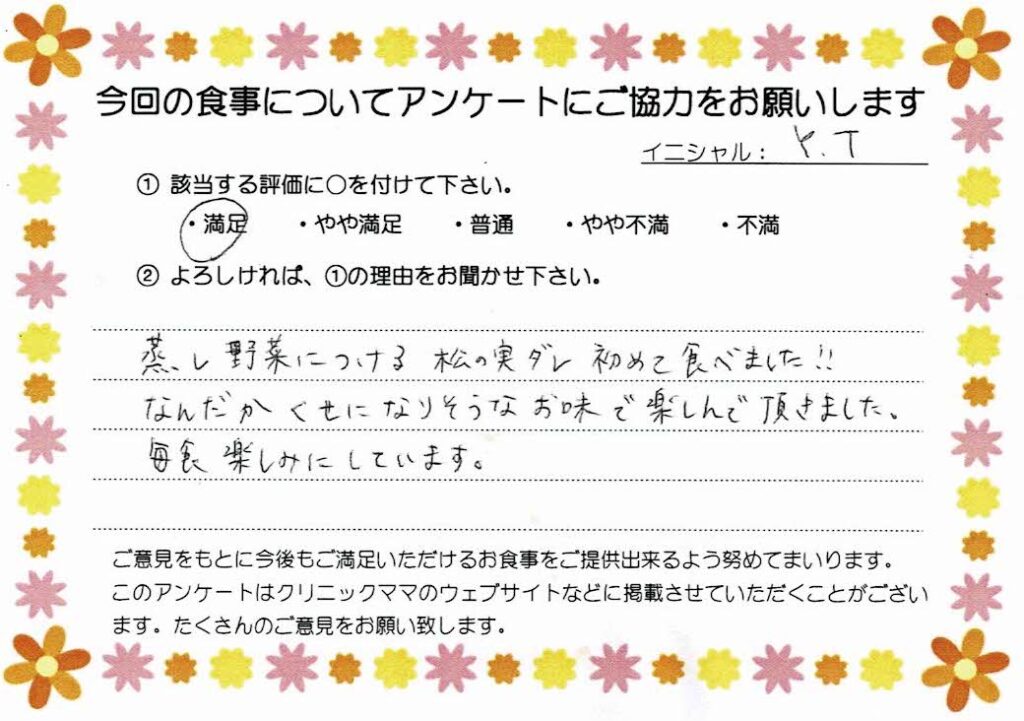 今回の食事についてアンケートにご協力をお願いします
イニシャル： Y.T
① 該当する評価に○を付けて下さい。
・満足 ・やや満足 ・普通 ・やや不満 ・不満
② よろしければ、①の理由をお聞かせ下さい。
蒸し野菜につける 松の実ダレ 初めて食べました!!
なんだか くせになりそうな お味で楽しんで頂きました。
毎食 楽しみにしています。
ご意見をもとに今後もご満足いただけるお食事をご提供出来るよう努めてまいります。
このアンケートはクリニックママのウェブサイトなどに掲載させていただくことがござい
ます。たくさんのご意見をお願い致します。